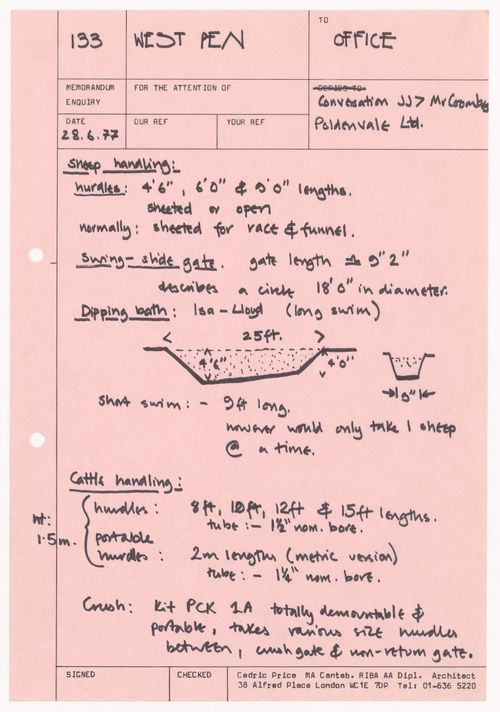 133 WEST PEN
TO
OFFICE
MEMORANDUM
ENQUIRY
FOR THE ATTENTION OF
COPIES TO
Conversation JJ > Mr Coombes
Poldenvale Ltd.
DATE
28.6.77
OUR REF
YOUR REF
Sheep handling:
hurdles: 4'6", 6'0" & 9'0" lengths.
sheeted or open
normally: sheeted for race & funnel.
Swing-slide gate. gate length 9'2"
describes a circle 18'0" in diameter.
Dipping bath: Isa-Lloyd (long swim)
25ft.
4'6"
4'0"
9"
short swim: - 9ft long.
however would only take 1 sheep
@ a time.
Cattle handling:
hurdles: 8ft, 10ft, 12ft & 15ft lengths.
tube: - 1½" nom. bore.
ht:
1.5m.
portable
hurdles: 2m lengths (metric version)
tube: - 1¼" nom. bore.
Crush: Kit PCK 1A totally demountable &
portable, takes various size hurdles
between, crush gate & non-return gate.
SIGNED
CHECKED
Cedric Price MA Cantab. RIBA AA Dipl. Architect
38 Alfred Place London WC1E 7DP Tel: 01-636 5220